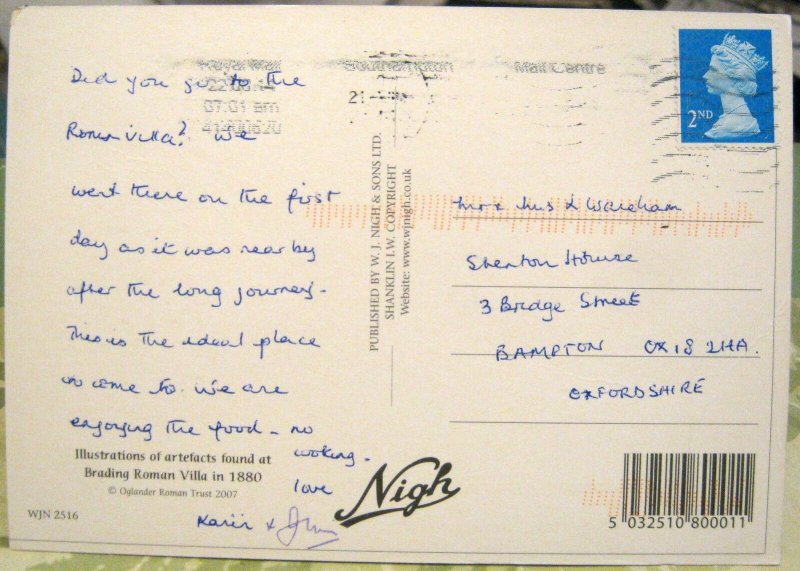 Royal Mail
Southampton
Mail Centre
07:01 am
41400620
2ND
Did you go to the
Roman Villa? We
went there on the first
day as it was nearby
after the long journey -
This is the ideal place
to come to. We are
enjoying the food - no
cooking.
love
Karin &
Illustrations of artefacts found at
Brading Roman Villa in 1880
© Oglander Roman Trust 2007
WJN 2516
PUBLISHED BY W. J. NIGH & SONS LTD.
SHANKLIN I.W. COPYRIGHT
Website: www.wjnigh.co.uk
Nigh
Mr & Mrs Wareham
Shenton House
3 Bridge Street
BAMPTON OX18 2HA.
OXFORDSHIRE
5 032510 800011